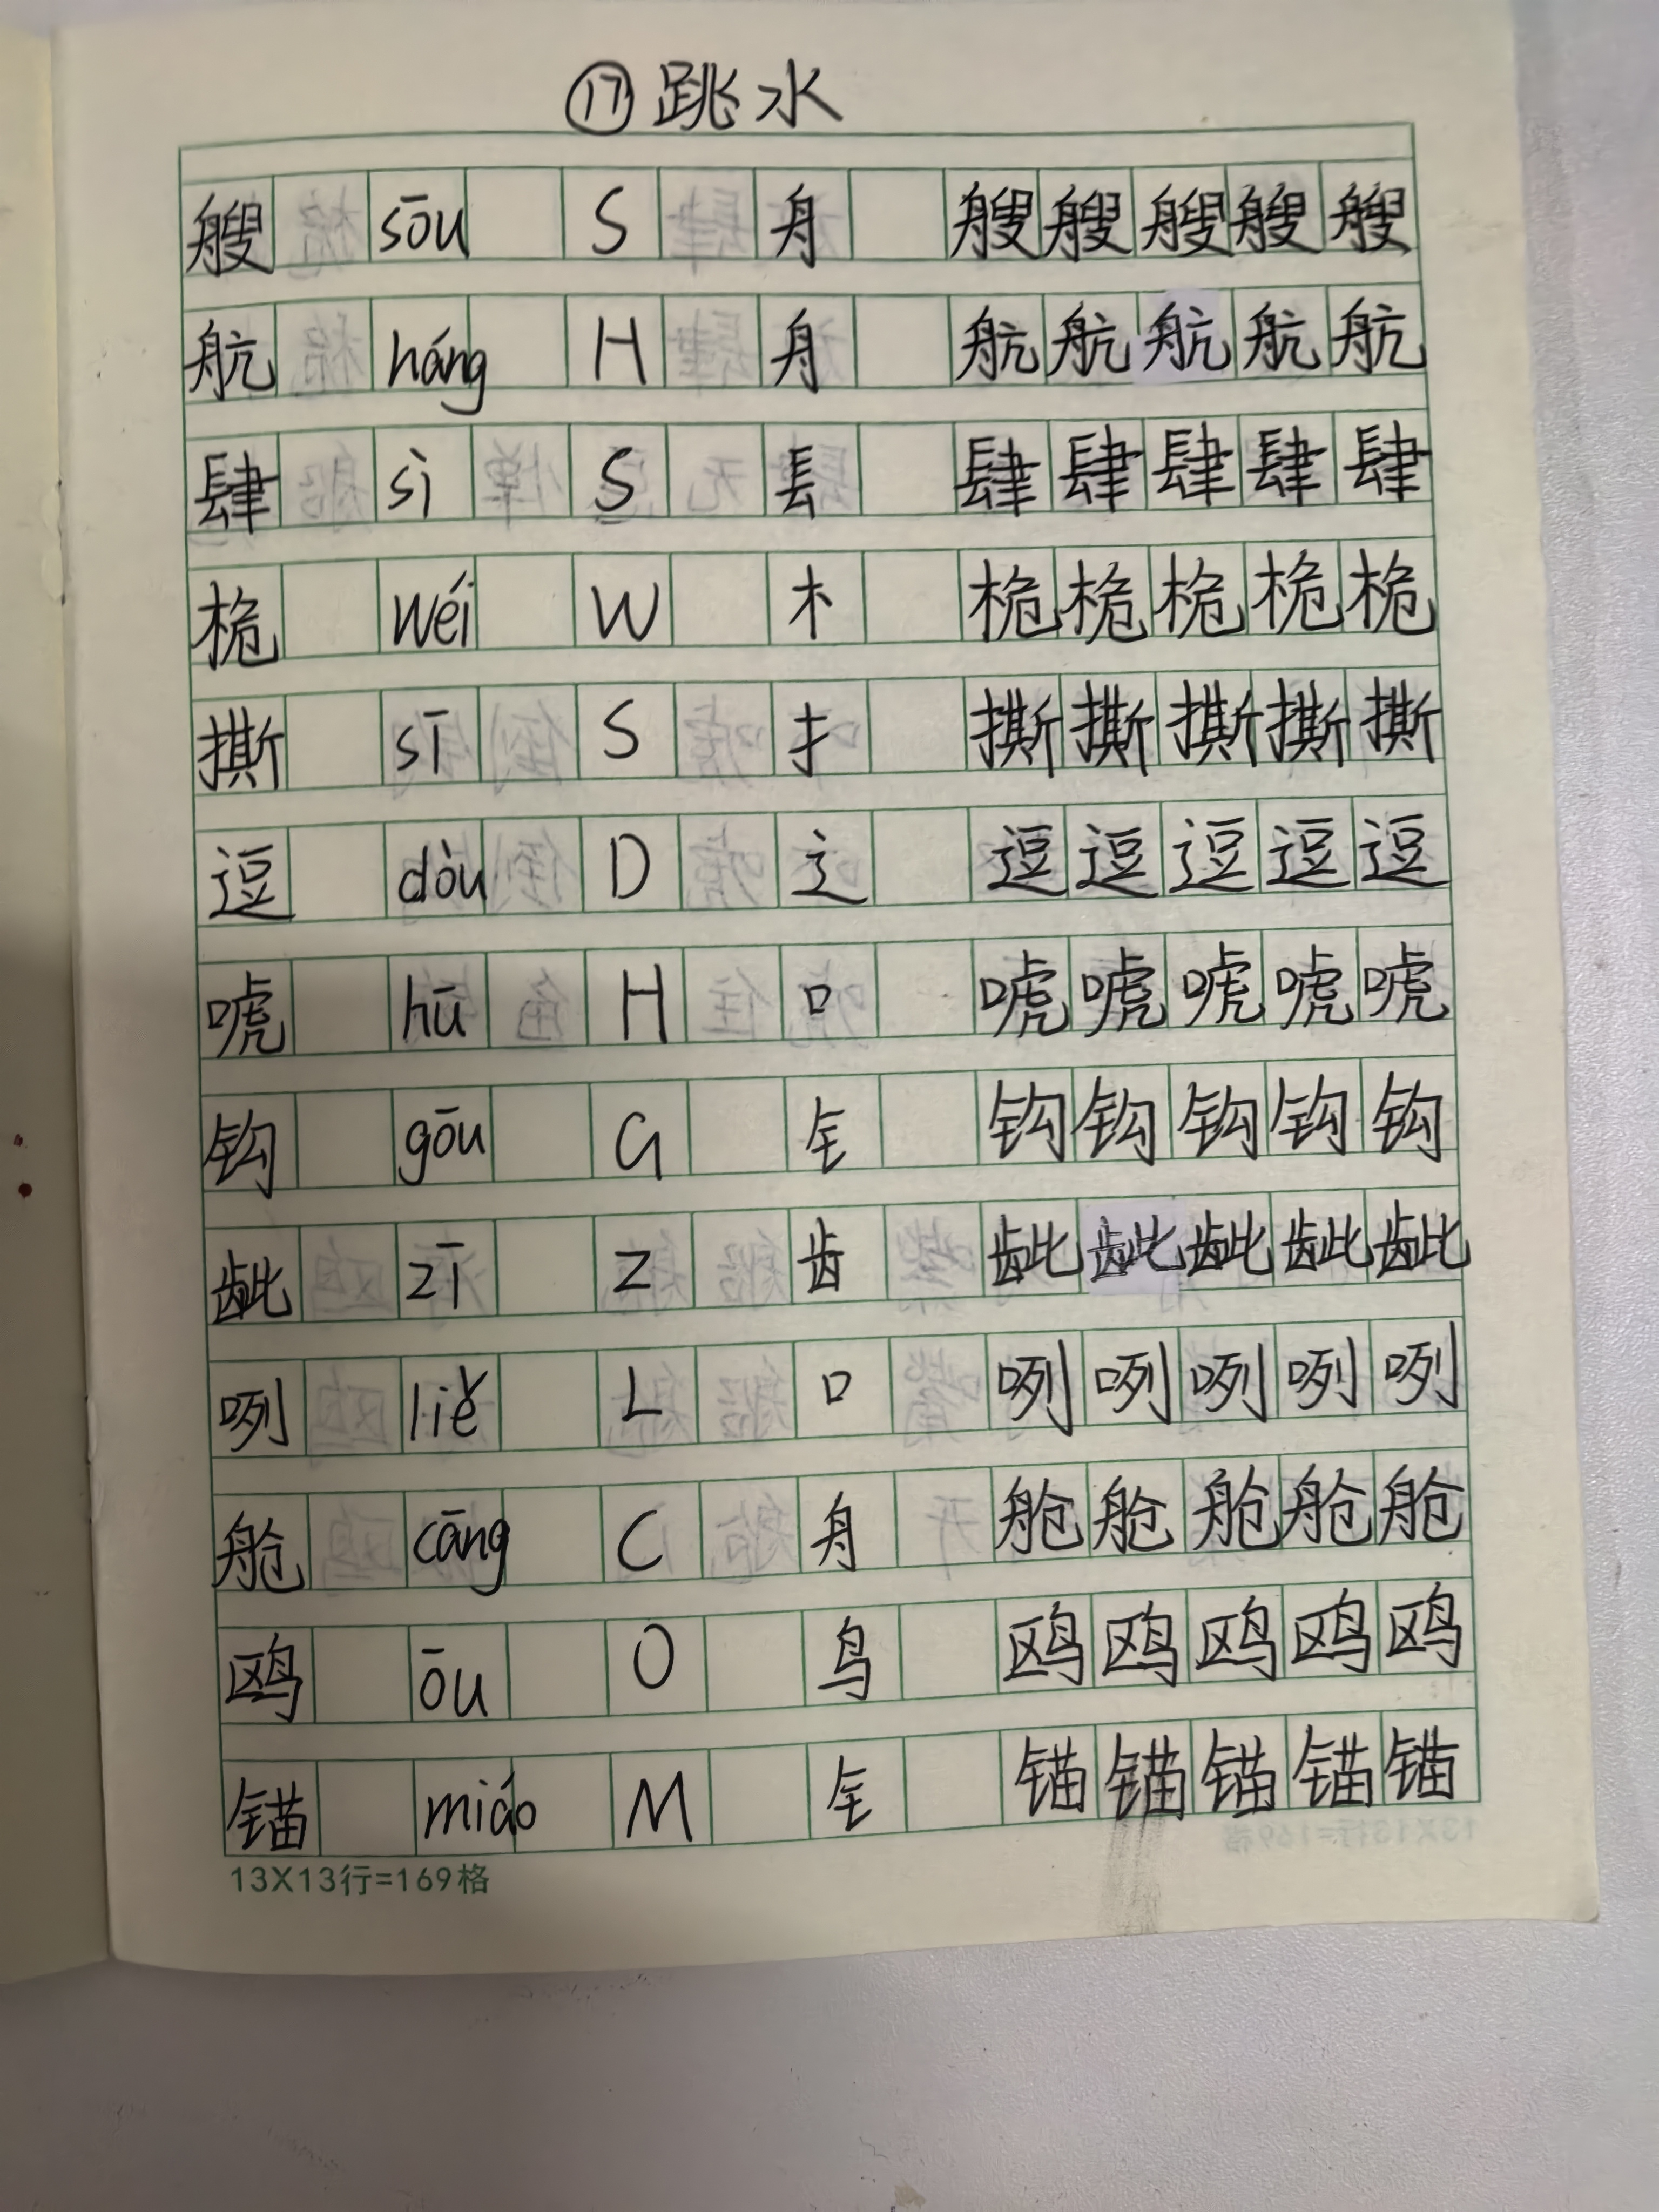 ⑰ 跳水
艘 sōu S 舟 艘艘艘艘艘
航 háng H 舟 航航航航航
肆 sì S 镸 肆肆肆肆肆
桅 wéi W 木 桅桅桅桅桅
撕 sī S 扌 撕撕撕撕撕
逗 dòu D 辶 逗逗逗逗逗
唬 hū H 口 唬唬唬唬唬
钩 gōu G 钅 钩钩钩钩钩
龇 zī Z 齿 龇龇龇龇龇
咧 liě L 口 咧咧咧咧咧
舱 cāng C 舟 舱舱舱舱舱
鸥 ōu O 鸟 鸥鸥鸥鸥鸥
锚 miáo M 钅 锚锚锚锚锚
13X13行=169格